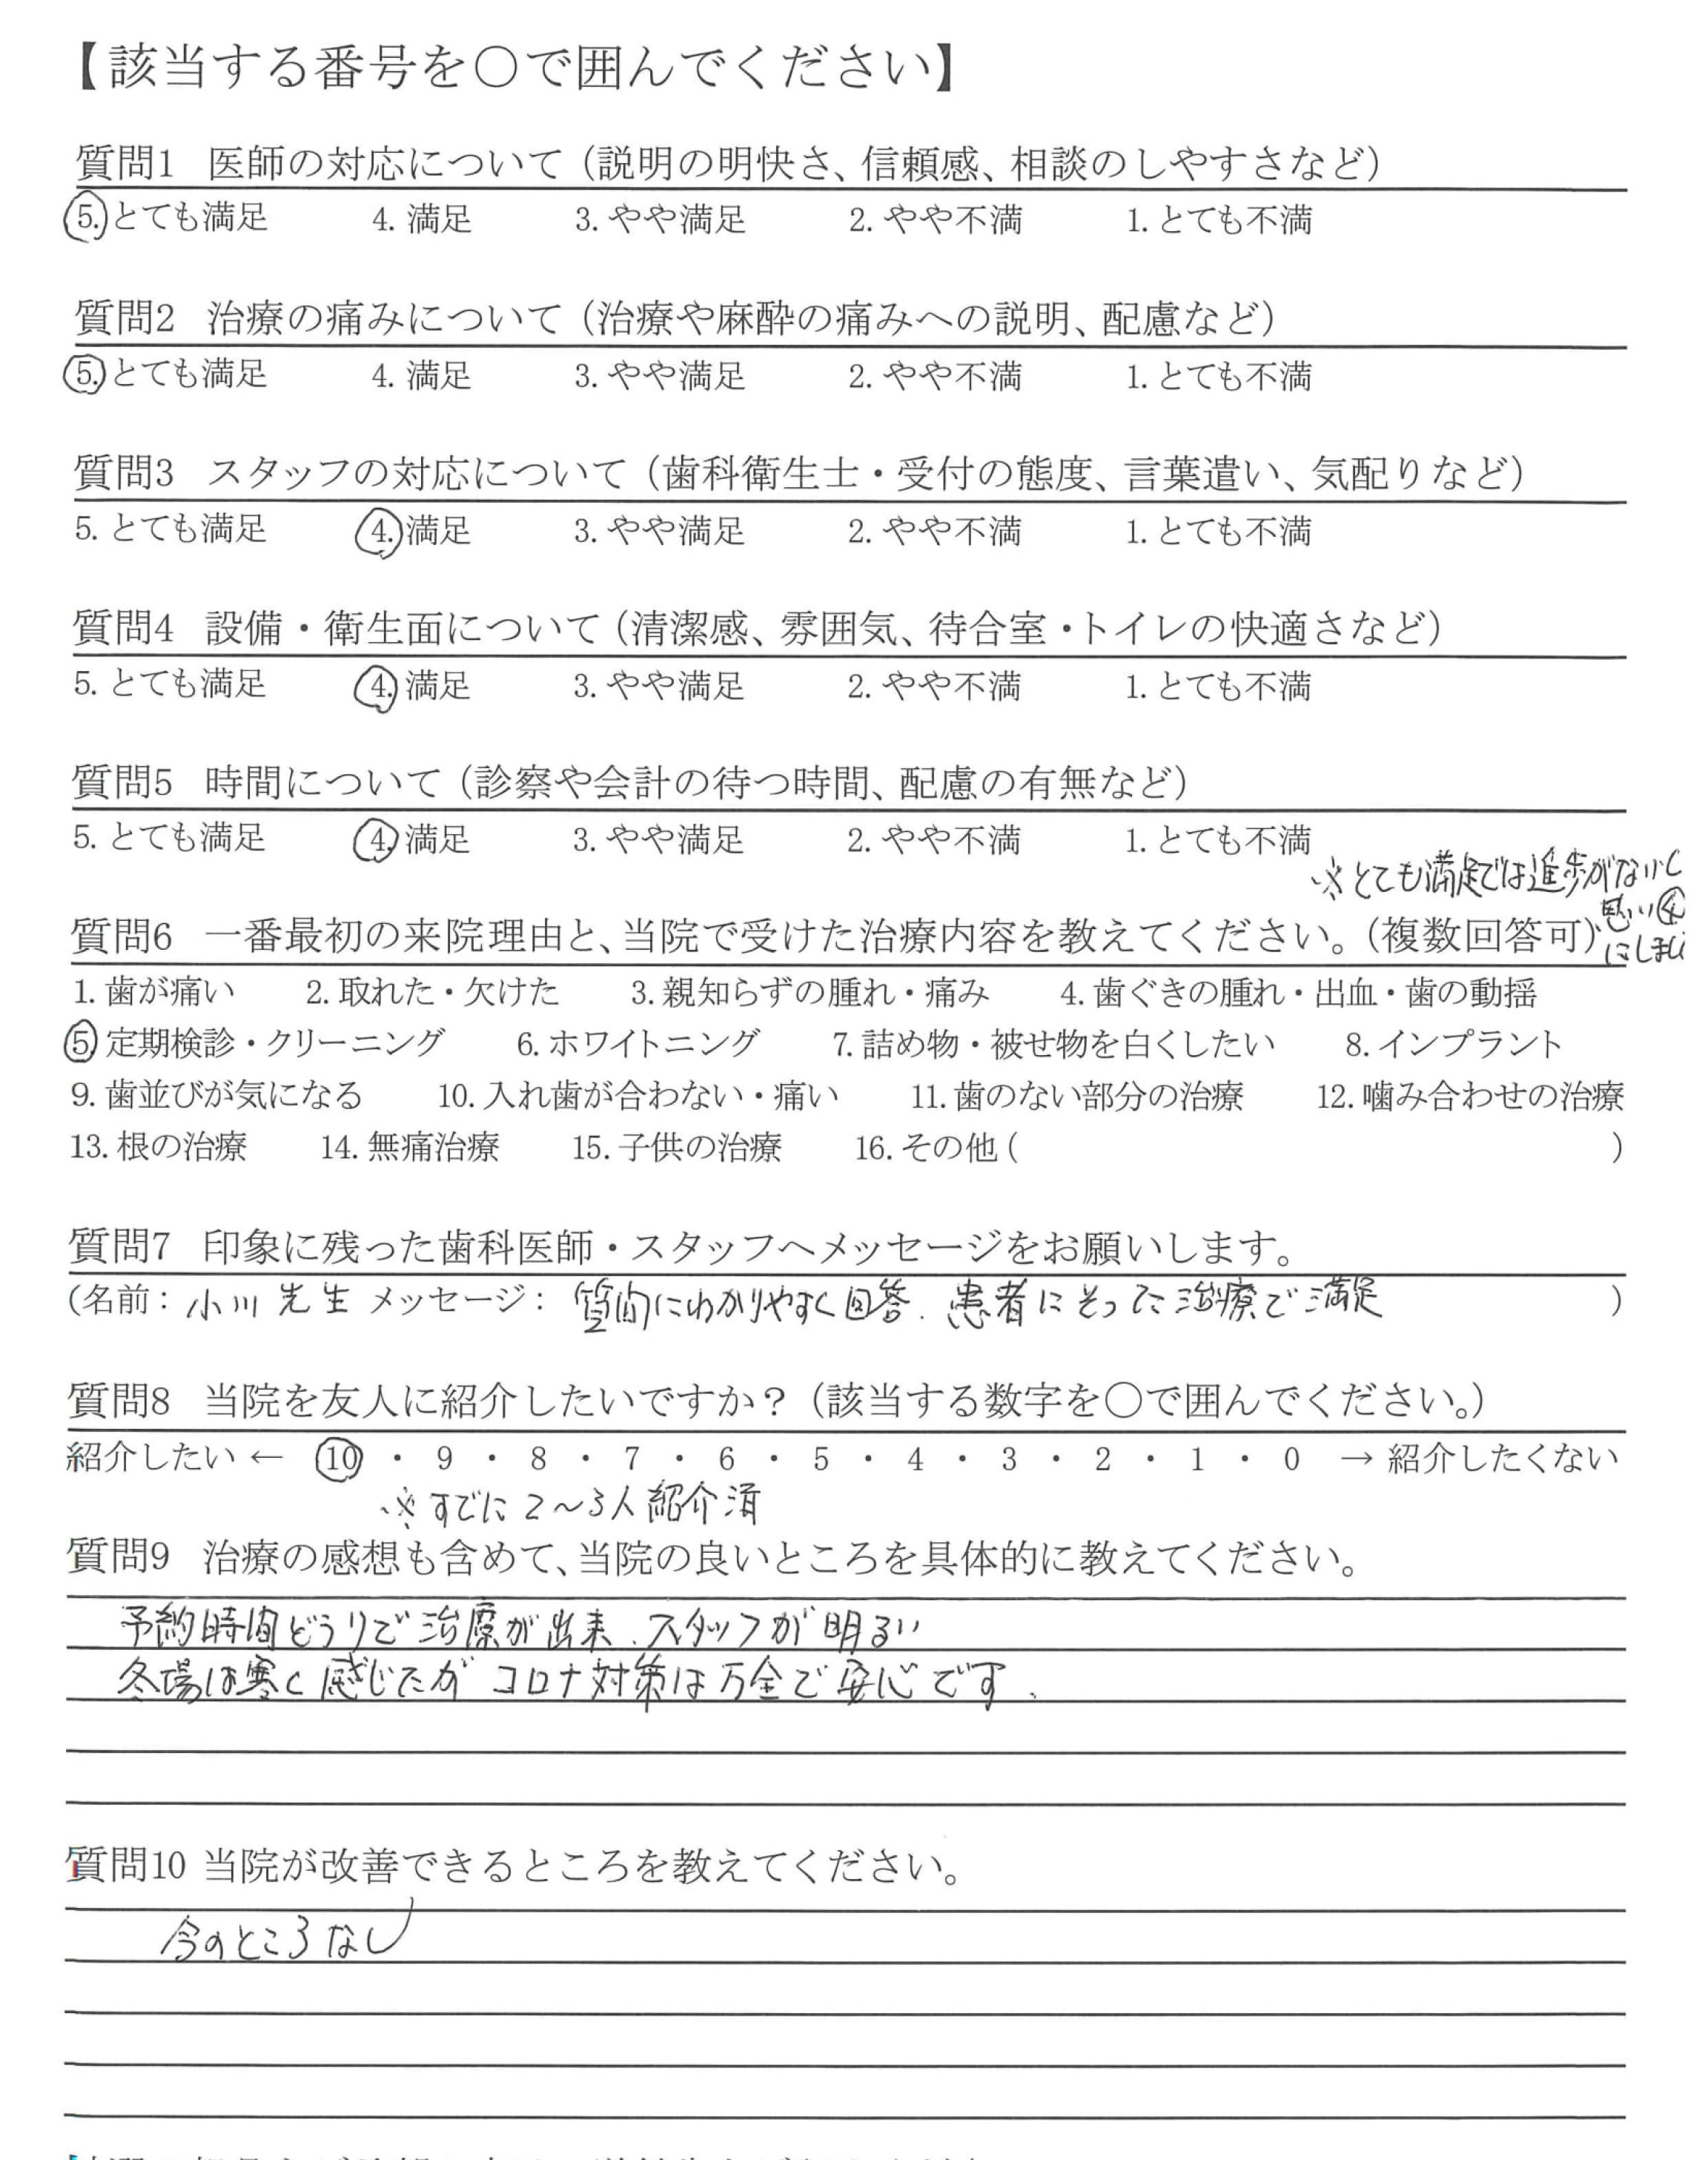 【該当する番号を〇で囲んでください】
質問1 医師の対応について（説明の明快さ、信頼感、相談のしやすさなど）
5. とても満足 4. 満足 3. やや満足 2. やや不満 1. とても不満
質問2 治療の痛みについて（治療や麻酔の痛みへの説明、配慮など）
5. とても満足 4. 満足 3. やや満足 2. やや不満 1. とても不満
質問3 スタッフの対応について（歯科衛生士・受付の態度、言葉遣い、気配りなど）
5. とても満足 4. 満足 3. やや満足 2. やや不満 1. とても不満
質問4 設備・衛生面について（清潔感、雰囲気、待合室・トイレの快適さなど）
5. とても満足 4. 満足 3. やや満足 2. やや不満 1. とても不満
質問5 時間について（診察や会計の待つ時間、配慮の有無など）
5. とても満足 4. 満足 3. やや満足 2. やや不満 1. とても不満
※とても満足では進歩がないと
思い④
にしまし
質問6 一番最初の来院理由と、当院で受けた治療内容を教えてください。（複数回答可）
1. 歯が痛い 2. 取れた・欠けた 3. 親知らずの腫れ・痛み 4. 歯ぐきの腫れ・出血・歯の動揺
5. 定期検診・クリーニング 6. ホワイトニング 7. 詰め物・被せ物を白くしたい 8. インプラント
9. 歯並びが気になる 10. 入れ歯が合わない・痛い 11. 歯のない部分の治療 12. 噛み合わせの治療
13. 根の治療 14. 無痛治療 15. 子供の治療 16. その他（ ）
質問7 印象に残った歯科医師・スタッフへメッセージをお願いします。
（名前：小川先生 メッセージ：質問にわかりやすく回答、患者にそった治療で満足 ）
質問8 当院を友人に紹介したいですか？（該当する数字を〇で囲んでください。）
紹介したい ← 10 ・ 9 ・ 8 ・ 7 ・ 6 ・ 5 ・ 4 ・ 3 ・ 2 ・ 1 ・ 0 → 紹介したくない
※すでに2～3人紹介済
質問9 治療の感想も含めて、当院の良いところを具体的に教えてください。
予約時間どうりで治療が出来、スタッフが明るい
冬場は寒く感じたがコロナ対策は万全で安心です。
質問10 当院が改善できるところを教えてください。
今のところなし